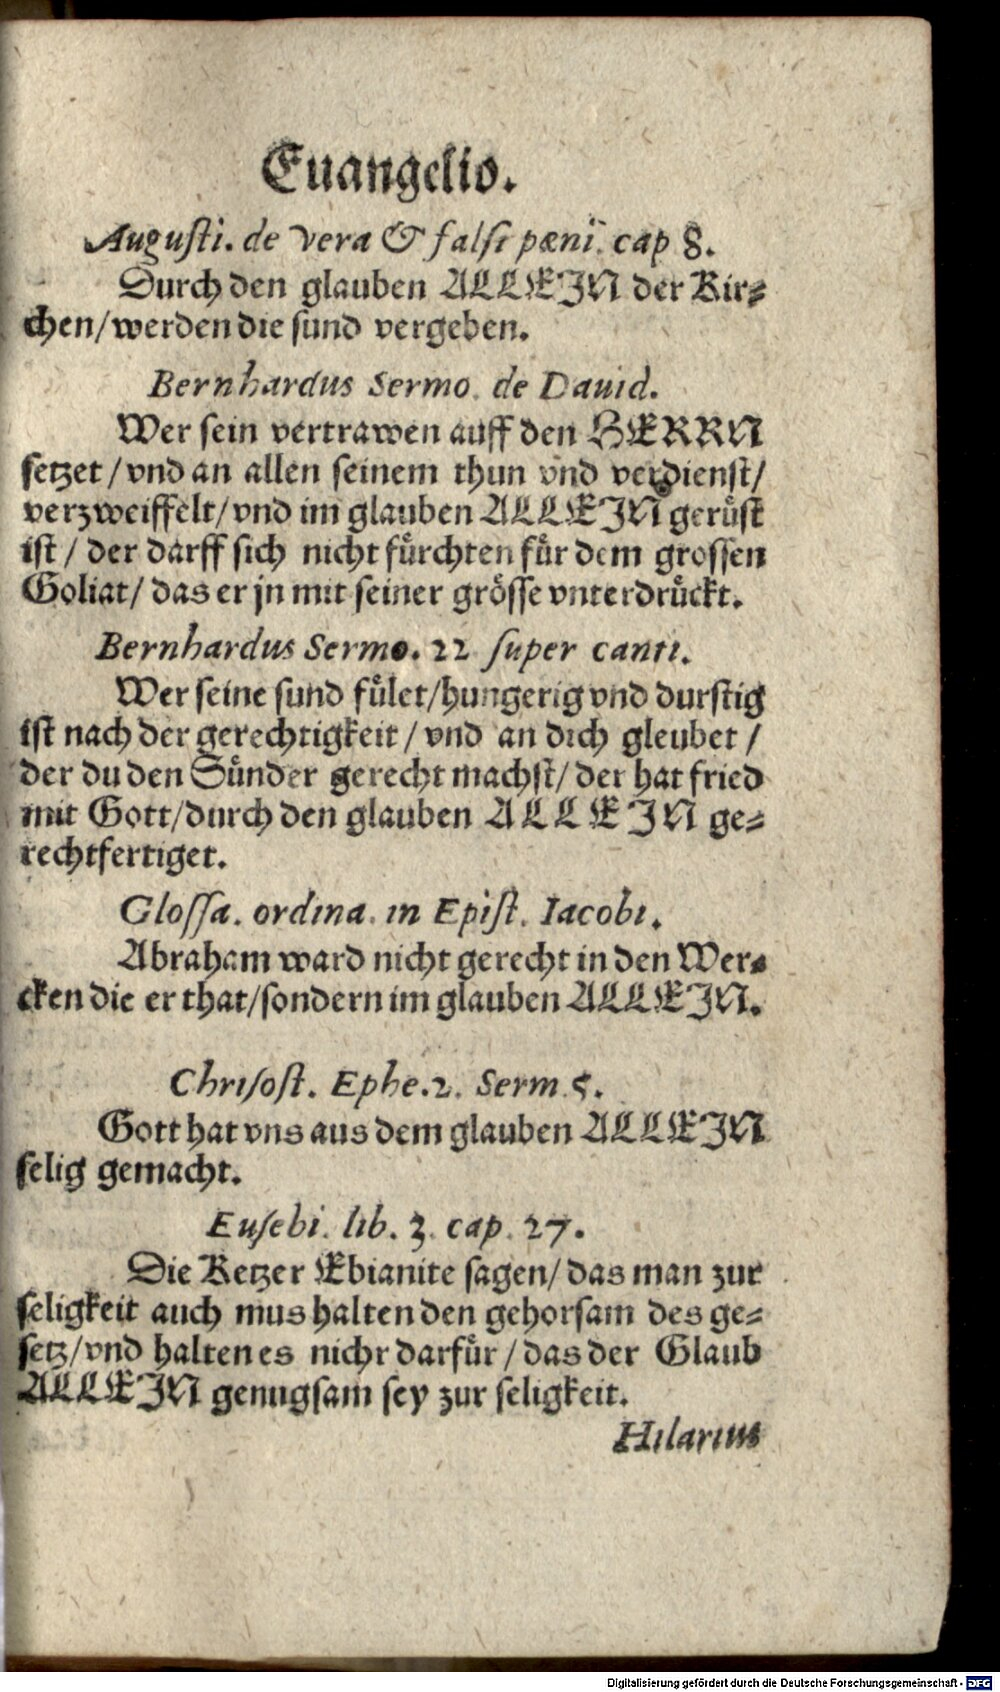 Euangelio.
Augusti. de vera & falsi pæni. cap 8.
Durch den glauben ALLEIN der Kir⸗
chen/werden die sund vergeben.
Bernhardus Sermo. de Dauid.
Wer sein vertrawen auff den HERRN
setzet/vnd an allen seinem thun vnd verdienst/
verzweiffelt/vnd im glauben ALLEIN gerüst
ist/der darff sich nicht fürchten für dem grossen
Goliat/das er jn mit seiner grösse vnterdrückt.
Bernhardus Sermo. 22 super canti.
Wer seine sund fület/hungerig vnd durstig
ist nach der gerechtigkeit/vnd an dich gleubet/
der du den Sünder gerecht machst/der hat fried
mit Gott/durch den glauben ALLEIN ge⸗
rechtfertiget.
Glossa. ordina. in Epist. Iacobi.
Abraham ward nicht gerecht in den Wer⸗
cken die er that/sondern im glauben ALLEIN.
Chrisost. Ephe.2. Serm 5.
Gott hat vns aus dem glauben ALLEIN
selig gemacht.
Eusebi. lib. 3. cap. 27.
Die Ketzer Ebianite sagen/das man zur
seligkeit auch mus halten den gehorsam des ge⸗
setz/vnd halten es nichr darfür/das der Glaub
ALLEIN genugsam sey zur seligkeit.
Hilarius
Digitalisierung gefördert durch die Deutsche Forschungsgemeinschaft - DFG